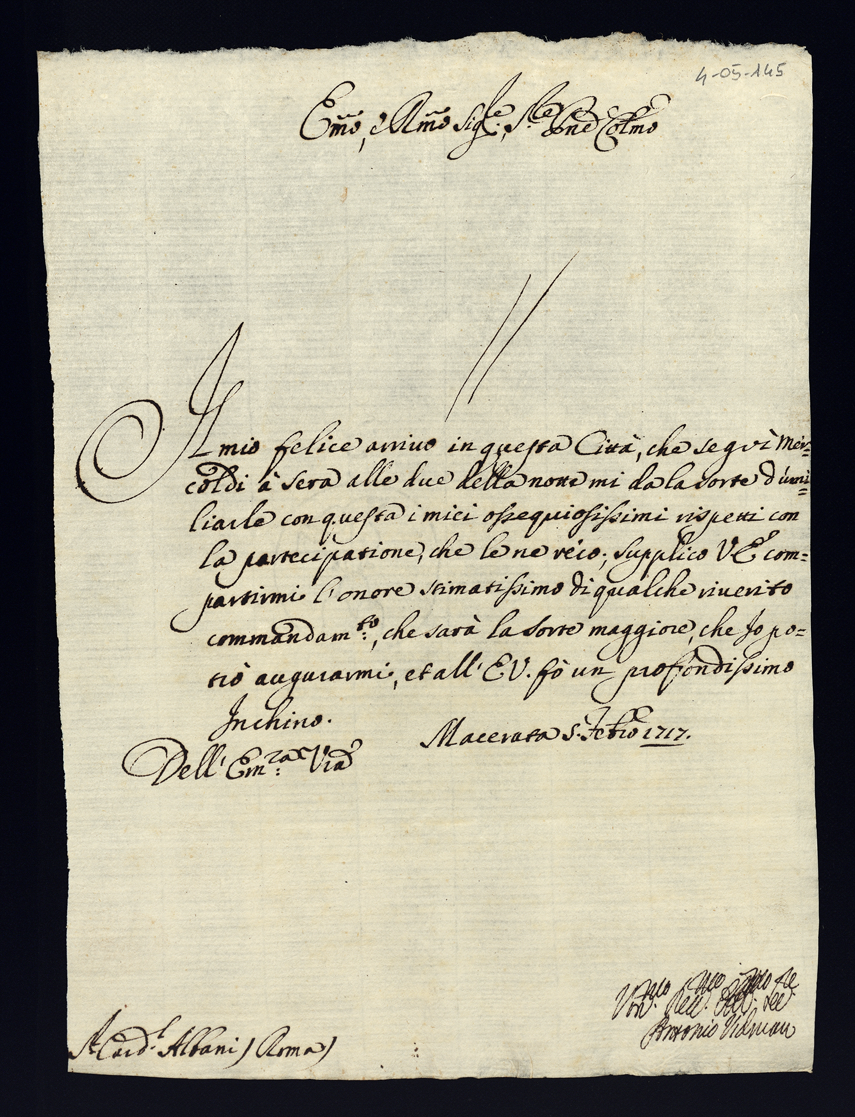 4-05-145
Emo, e Rmo Sig.re, Sig.re Pne Colmo
Il mio felice arriuo in questa Città, che seguì Mer=
coldì à sera alle due della notte mi da la sorte d'umi=
liarle con questa i miei ossequiosissimi rispetti con
la partecipatione, che le ne réco; supplico V E com=
partirmi l'onore stimatissimo di qualche riuerito
commandam.to, che sarà la sorte maggiore, che Io po=
trò augurarmi, et all' E V. fò un profondissimo
Inchino.
Macerata 5. Febro 1717.
Dell' Em.za Vra
Antonio Vidman
S.r Card.l Albani ) Roma )